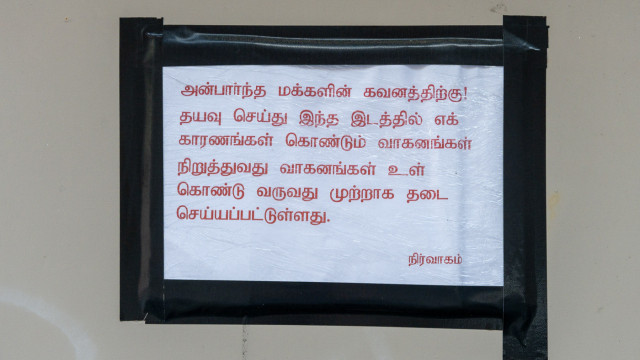 அன்பார்ந்த மக்களின் கவனத்திற்கு!
தயவு செய்து இந்த இடத்தில் எக்
காரணங்கள் கொண்டும் வாகனங்கள்
நிறுத்துவது வாகனங்கள் உள்
கொண்டு வருவது முற்றாக தடை
செய்யப்பட்டுள்ளது.
நிர்வாகம்